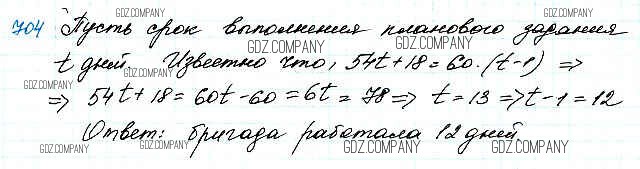 704 Пусть срок выполнения планового задания
t дней. Известно что, 54t+18=60·(t-1) ⇒
⇒ 54t+18=60t-60=6t=78⇒ t=13⇒t-1=12
Ответ: бригада работала 12 дней
GDZ.COMPANY
GDZ.COMPANY
GDZ.COMPANY
GDZ.COMPANY
GDZ.COMPANY
GDZ.COMPANY
GDZ.COMPANY
GDZ.COMPANY
GDZ.COMPANY
GDZ.COMPANY
GDZ.COMPANY
GDZ.COMPANY